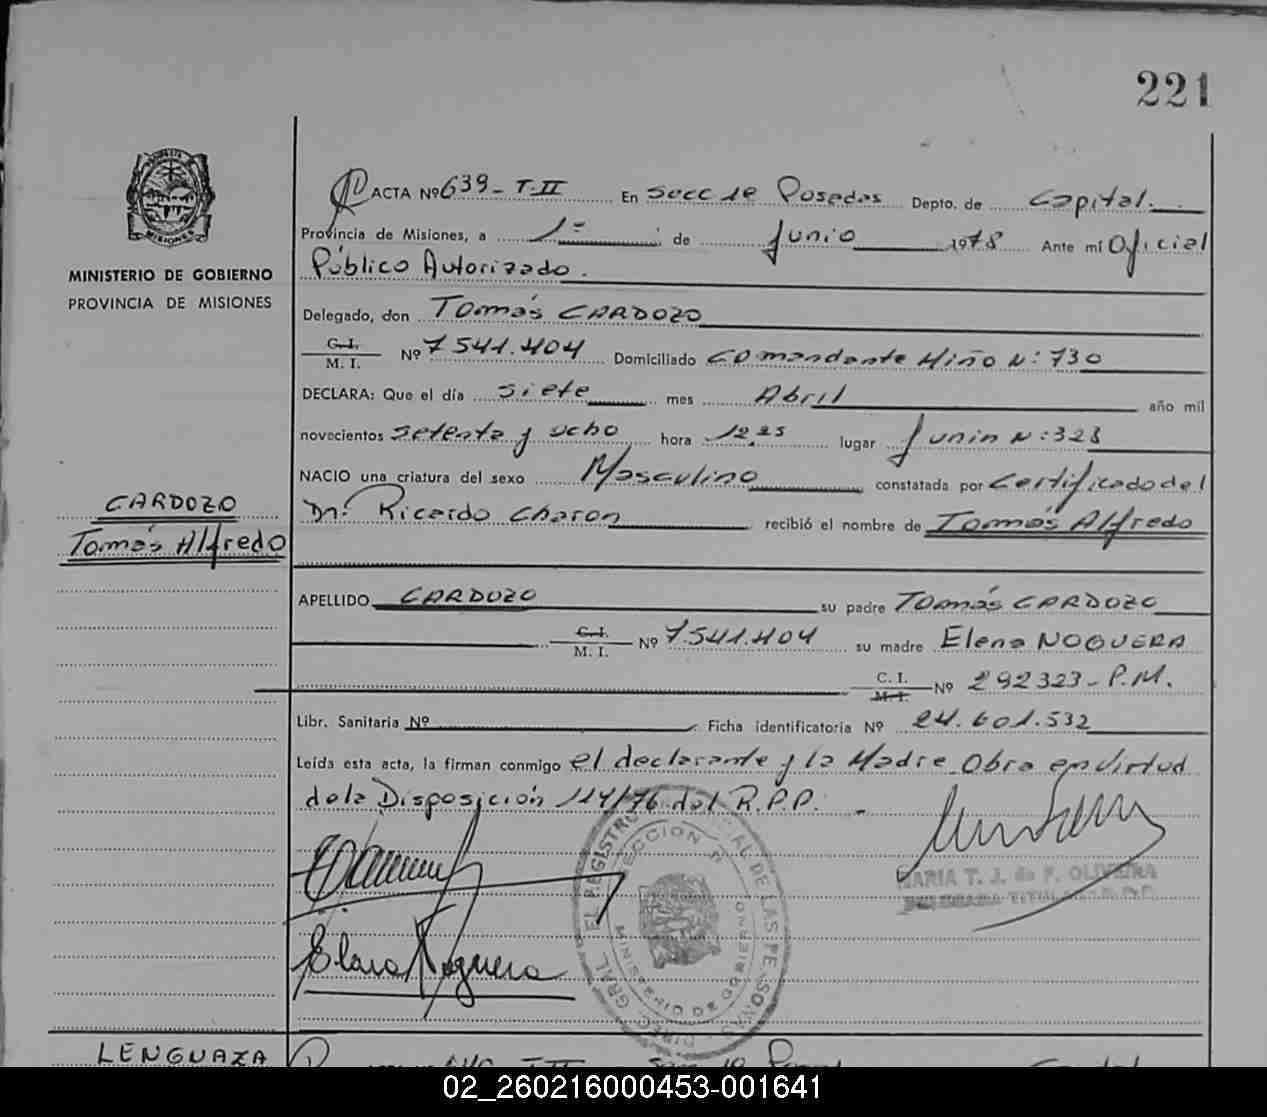 221
MINISTERIO DE GOBIERNO
PROVINCIA DE MISIONES
ACTA Nº 639-T-II En Secc 1e Posadas Depto. de Capital.
Provincia de Misiones, a 1º de Junio 1978 Ante mí Oficial
Público Autorizado.
Delegado, don Tomás CARDOZO
C. I.
M. I. Nº 7541.404 Domiciliado Comandante Miño N: 730
DECLARA: Que el día Siete mes Abril año mil
novecientos setenta y ocho hora 12,25 lugar Junin N: 323
NACIO una criatura del sexo Masculino constatada por Certificado del
Dr. Ricardo Charon recibió el nombre de Tomás Alfredo
CARDOZO
Tomás Alfredo
APELLIDO CARDOZO su padre Tomás CARDOZO
C. I.
M. I. Nº 7.541.404 su madre Elena NOGUERA
C. I.
M. I. Nº 292323-P.M.
Libr. Sanitaria Nº Ficha identificatoria Nº 24.601.532
Leída esta acta, la firman conmigo el declarante y la Madre Obra en virtud
de la Disposición 114/76 del R.P.P.
MARIA T. J. de F. OLIVEIRA
Elena Noguera
MINISTERIO DE GOBIERNO
LENGUAZA
02_260216000453-001641